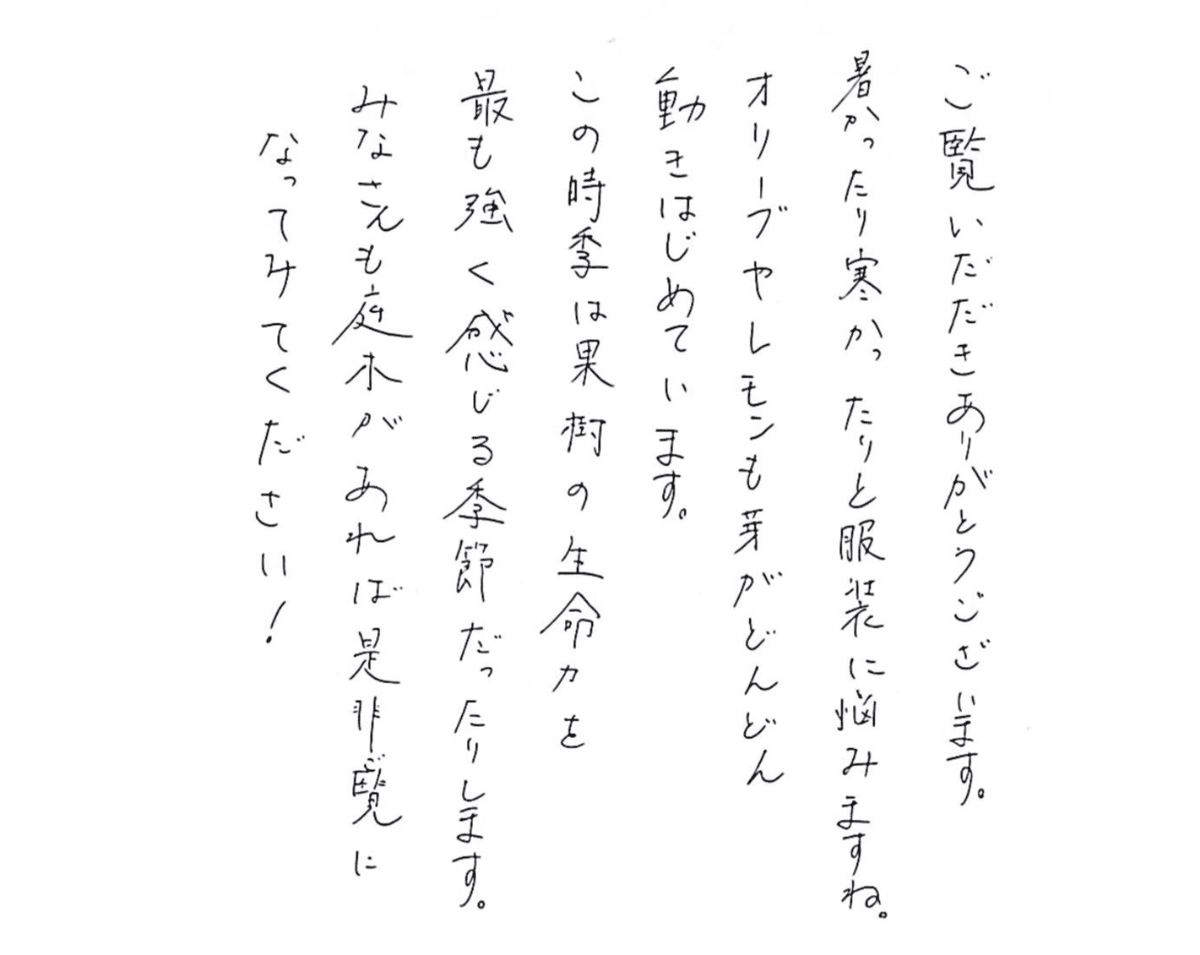 ご覧いただきありがとうございます。
暑かったり寒かったりと服装に悩みますね。
オリーブやレモンも芽がどんどん
動きはじめています。
この時季は果樹の生命力を
最も強く感じる季節だったりします。
みなさんも庭木があれば是非ご覧に
なってみてください！